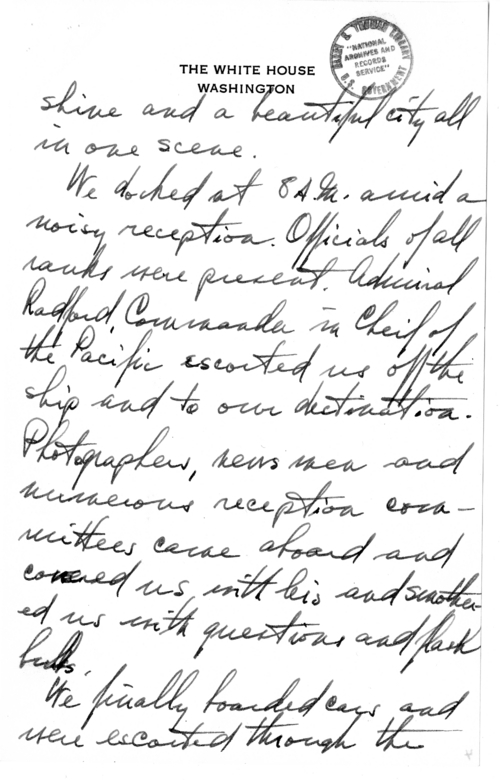 HARRY S. TRUMAN LIBRARY
"NATIONAL
ARCHIVES AND
RECORDS
SERVICE"
U.S. GOVERNMENT
THE WHITE HOUSE
WASHINGTON
shine and a beautiful city all
in one scene.
We docked at 8 A.M. amid a
noisy reception. Officials of all
ranks were present. Admiral
Radford, Commander in Cheif of
the Pacific escorted us off the
ship and to our destination.
Photographers, news men and
numerous reception com-
mittees came aboard and
covered us with leis and smother-
ed us with questions and flash
bulbs.
We finally boarded cars and
were escorted through the